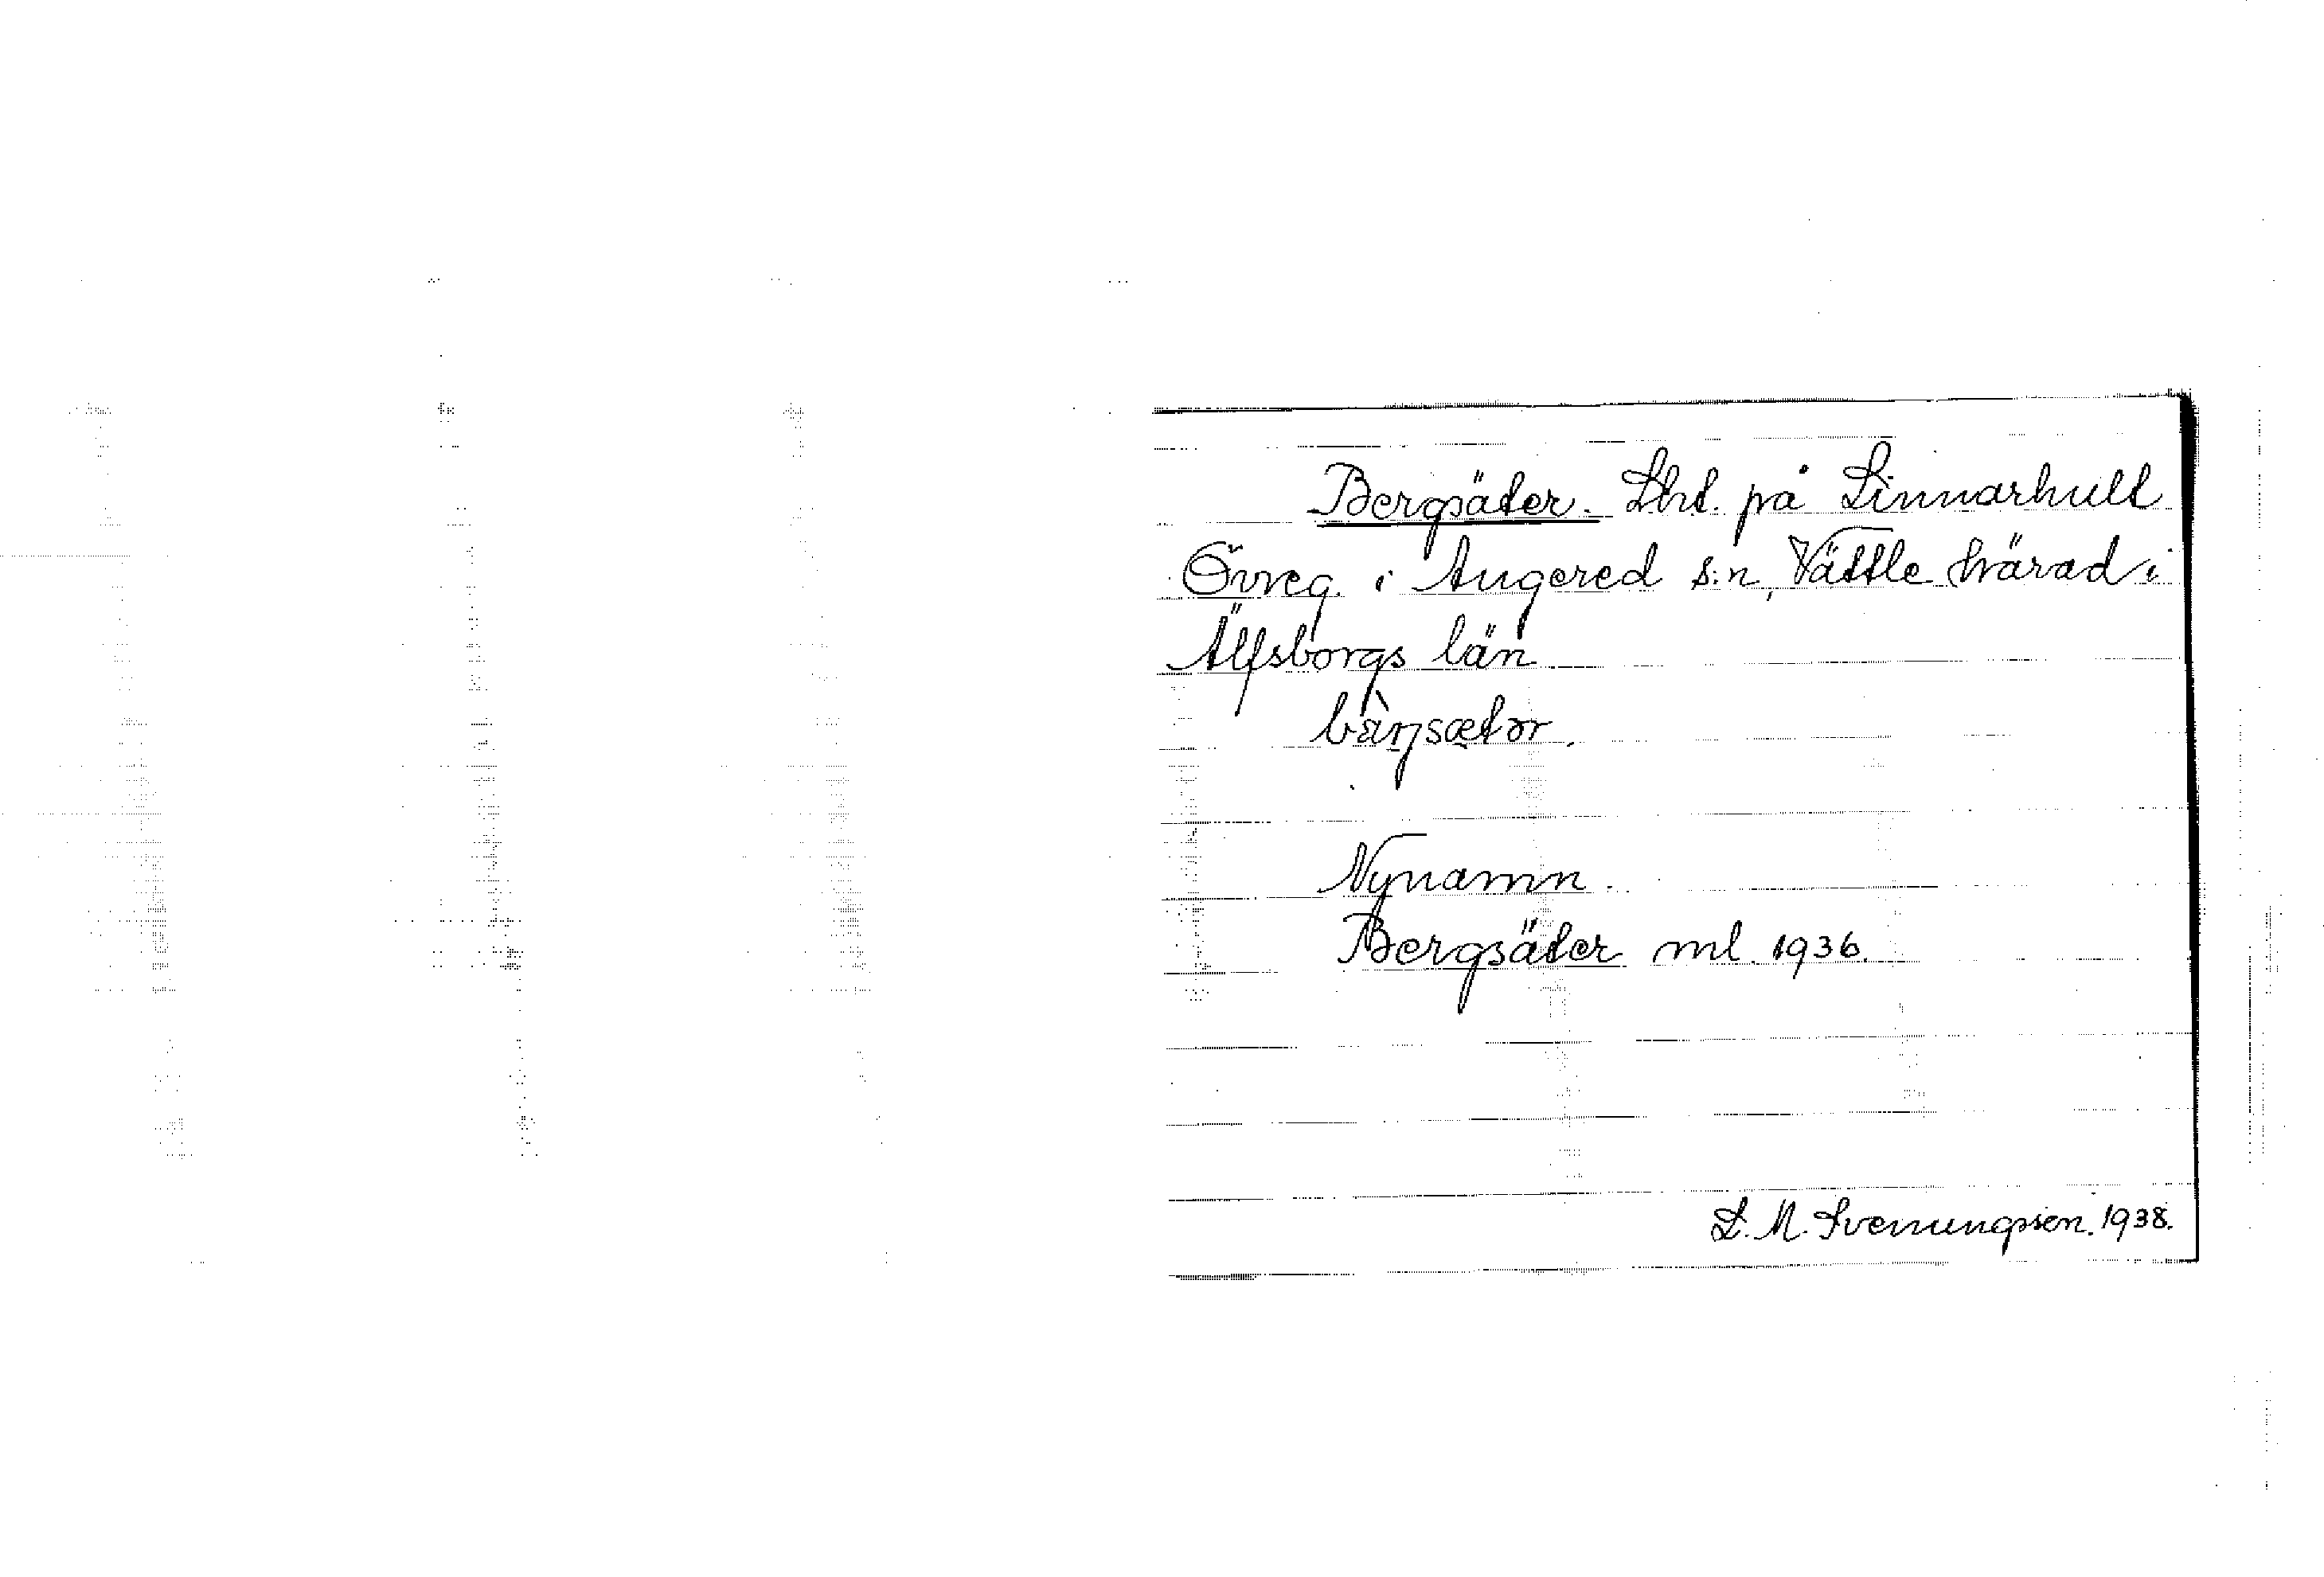 Bergsäter. Lht. på Linnarhult
Övreg. i Angered s:n, Vättle härad i
Älfsborgs län
bàrŋsætər.
Nynamn.
Bergsäter ml. 1936.
L. M. Svenungsson. 1938.